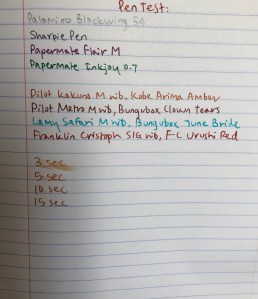 Pen Test:
Palamino Blackwing 54
Sharpie Pen
Papermate Flair M
Papermate Inkjoy 0.7
Pilot Kakuno M nib, Kobe Arima Amber
Pilot Metro M nib, Bungubox Clown Tears
Lamy Safari M nib, Bungubox June Bride
Franklin Cristoph SIG nib, FC Urushi Red
3 sec
5 sec
10 sec
15 sec